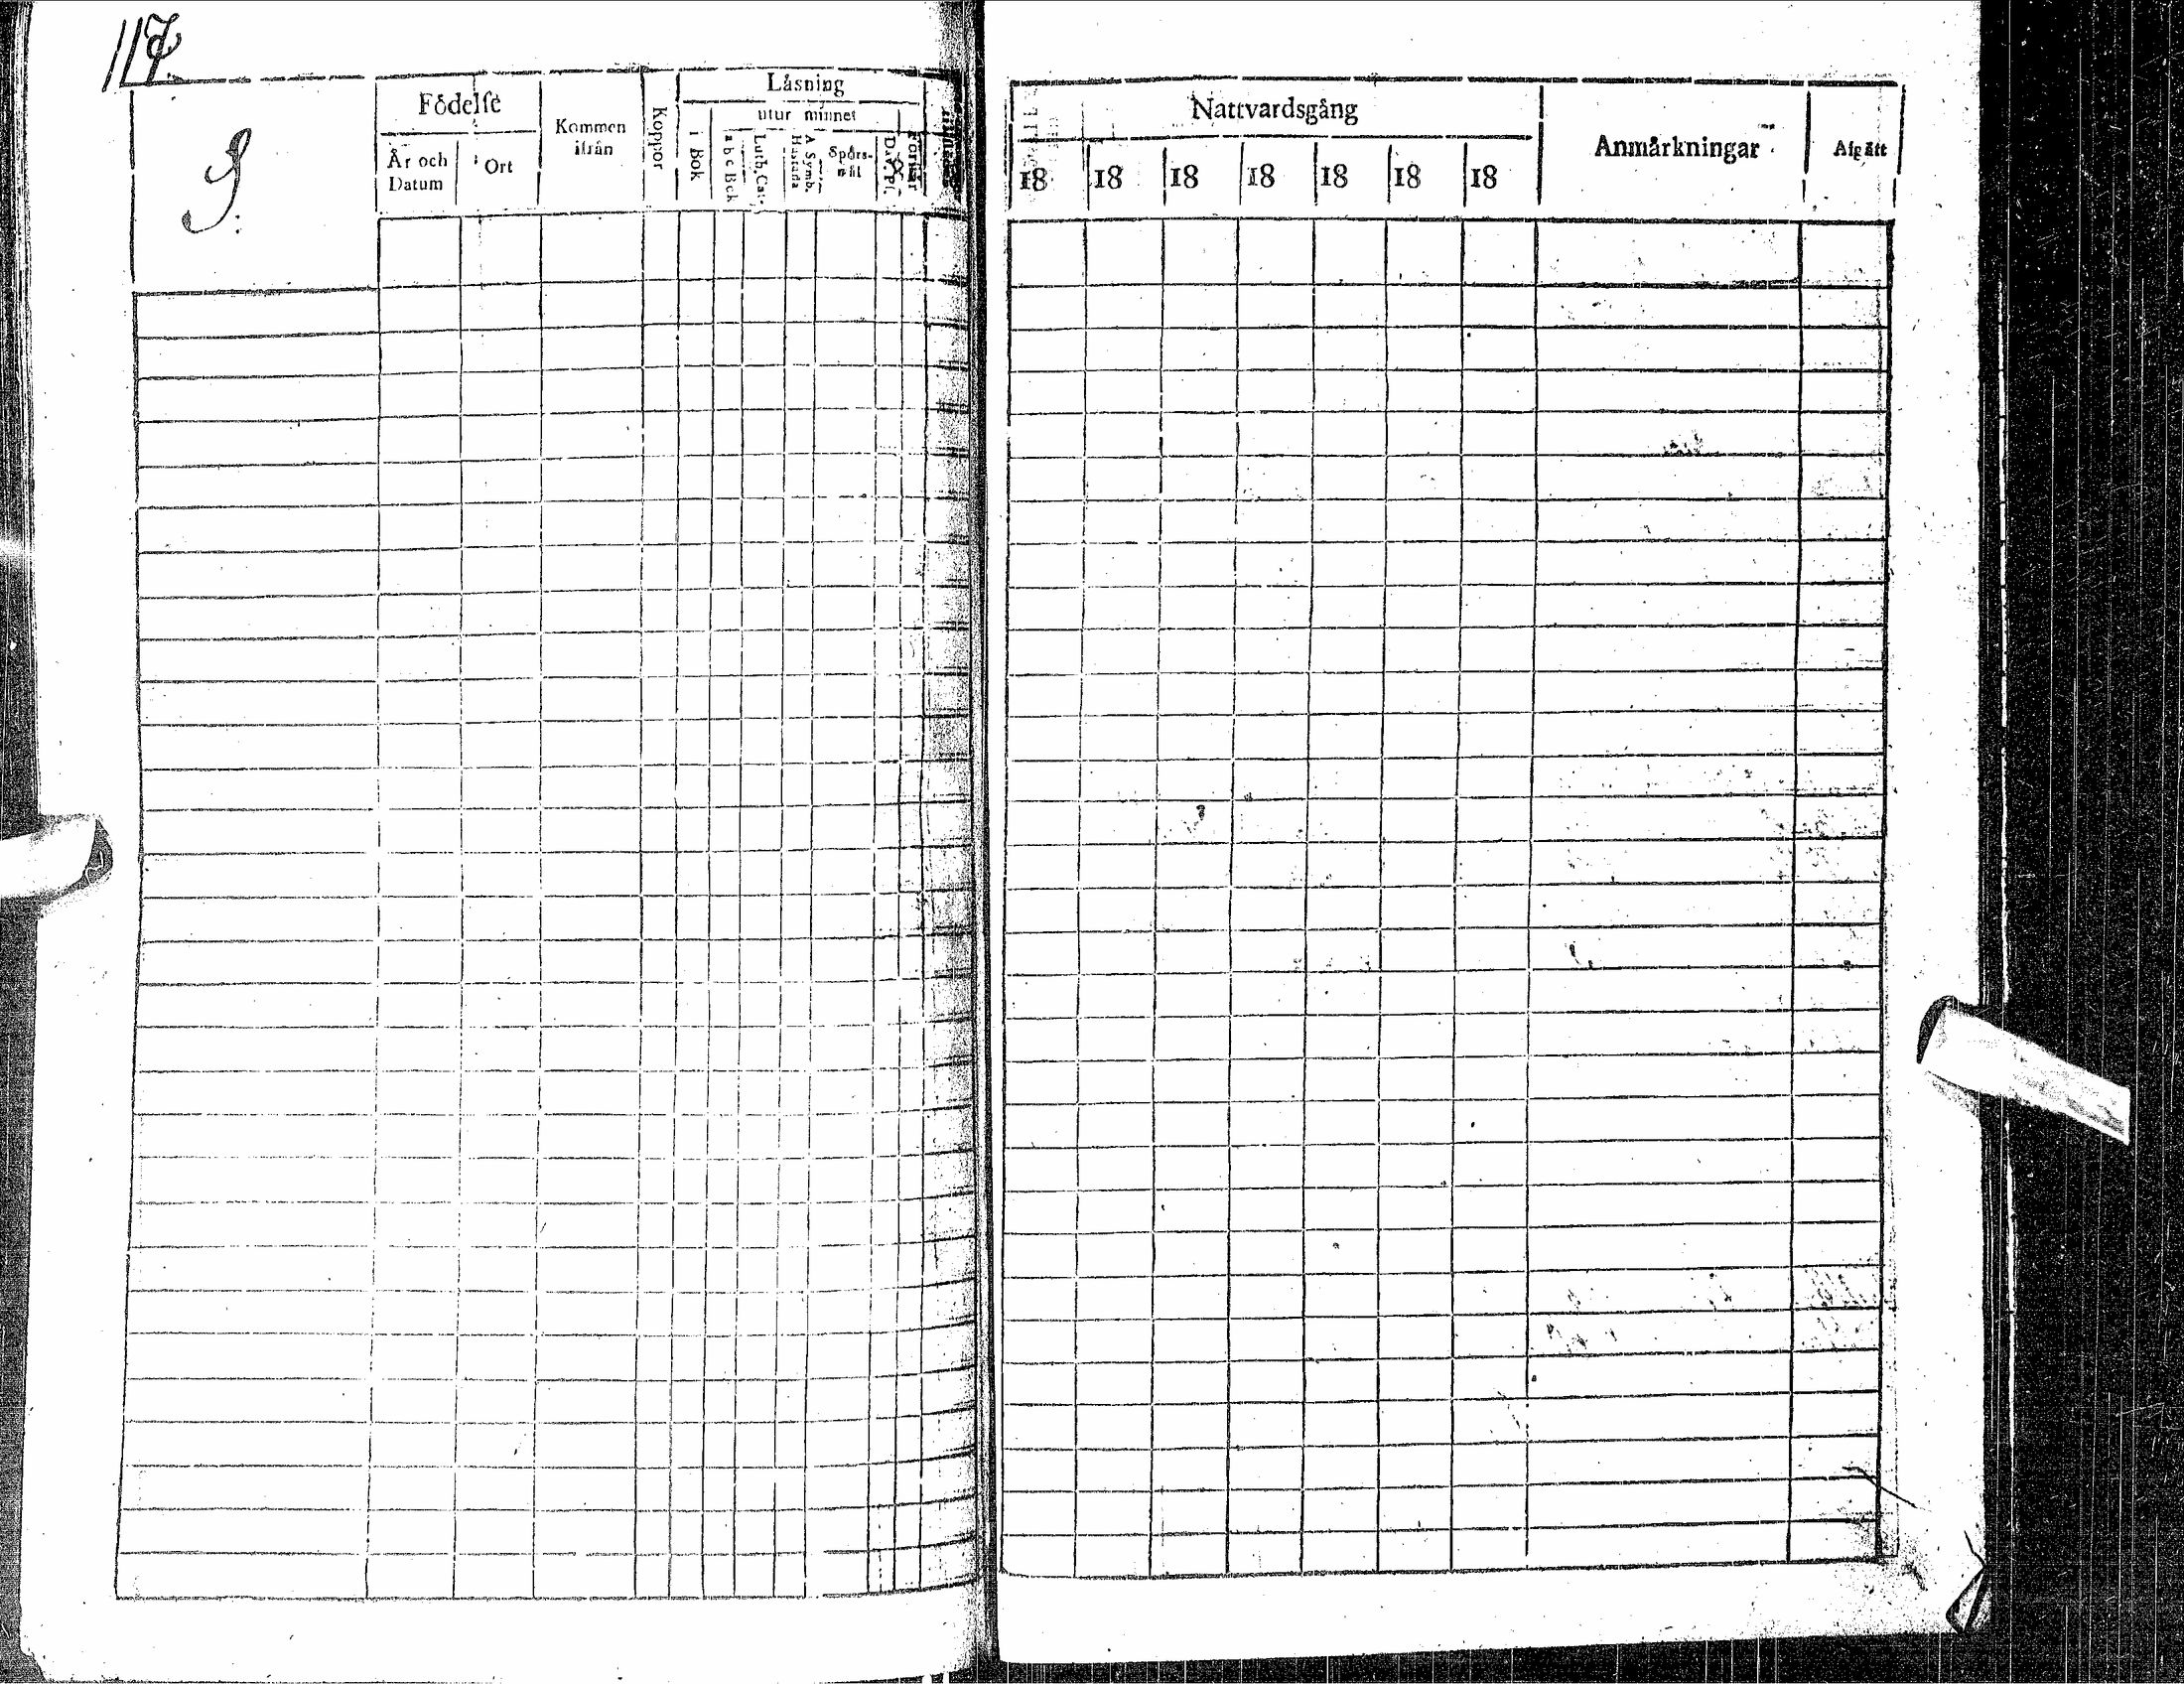 117.
Födelse
År och Datum
Ort
Kommen ifrån
Koppor
Läsning
i Bok
utur minnet
a b c Bok
Luth. Cat.
A Symb.
Hustafla
Spörs-mål
Dav. Ps.
Förstår
Nattvardsgång
18 18 18 18 18 18 18
Anmärkningar
Afgått